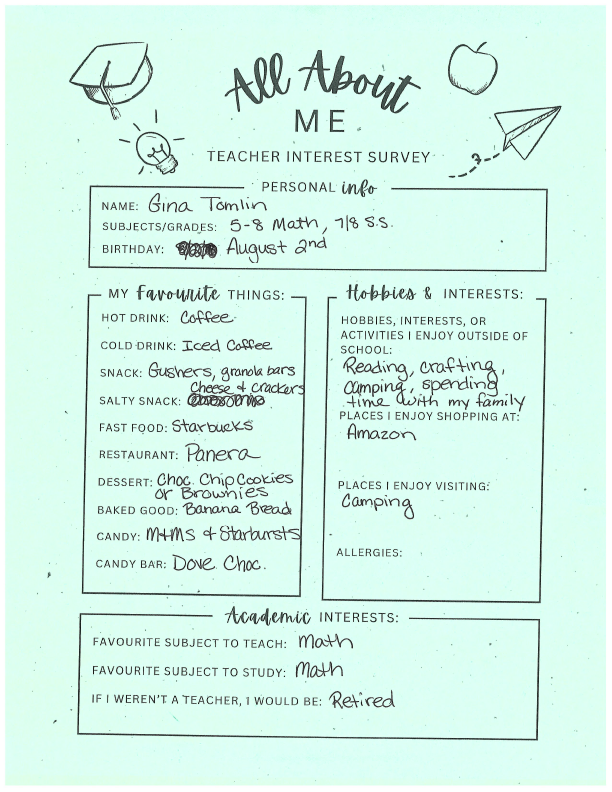 All About
ME
TEACHER INTEREST SURVEY
PERSONAL info
NAME: Gina Tomlin
SUBJECTS/GRADES: 5-8 Math, 7/8 S.S.
BIRTHDAY: August 2nd
MY Favourite THINGS:
HOT DRINK: Coffee
COLD DRINK: Iced Coffee
SNACK: Gushers, granola bars
Cheese & crackers
SALTY SNACK:
FAST FOOD: Starbucks
RESTAURANT: Panera
DESSERT: Choc. Chip Cookies
or Brownies
BAKED GOOD: Banana Bread
CANDY: M+Ms & Starbursts
CANDY BAR: Dove Choc.
Hobbies & INTERESTS:
HOBBIES, INTERESTS, OR
ACTIVITIES I ENJOY OUTSIDE OF
SCHOOL:
Reading, crafting,
camping, spending
time with my family
PLACES I ENJOY SHOPPING AT:
Amazon
PLACES I ENJOY VISITING:
Camping
ALLERGIES:
Academic INTERESTS:
FAVOURITE SUBJECT TO TEACH: Math
FAVOURITE SUBJECT TO STUDY: Math
IF I WEREN'T A TEACHER, I WOULD BE: Retired